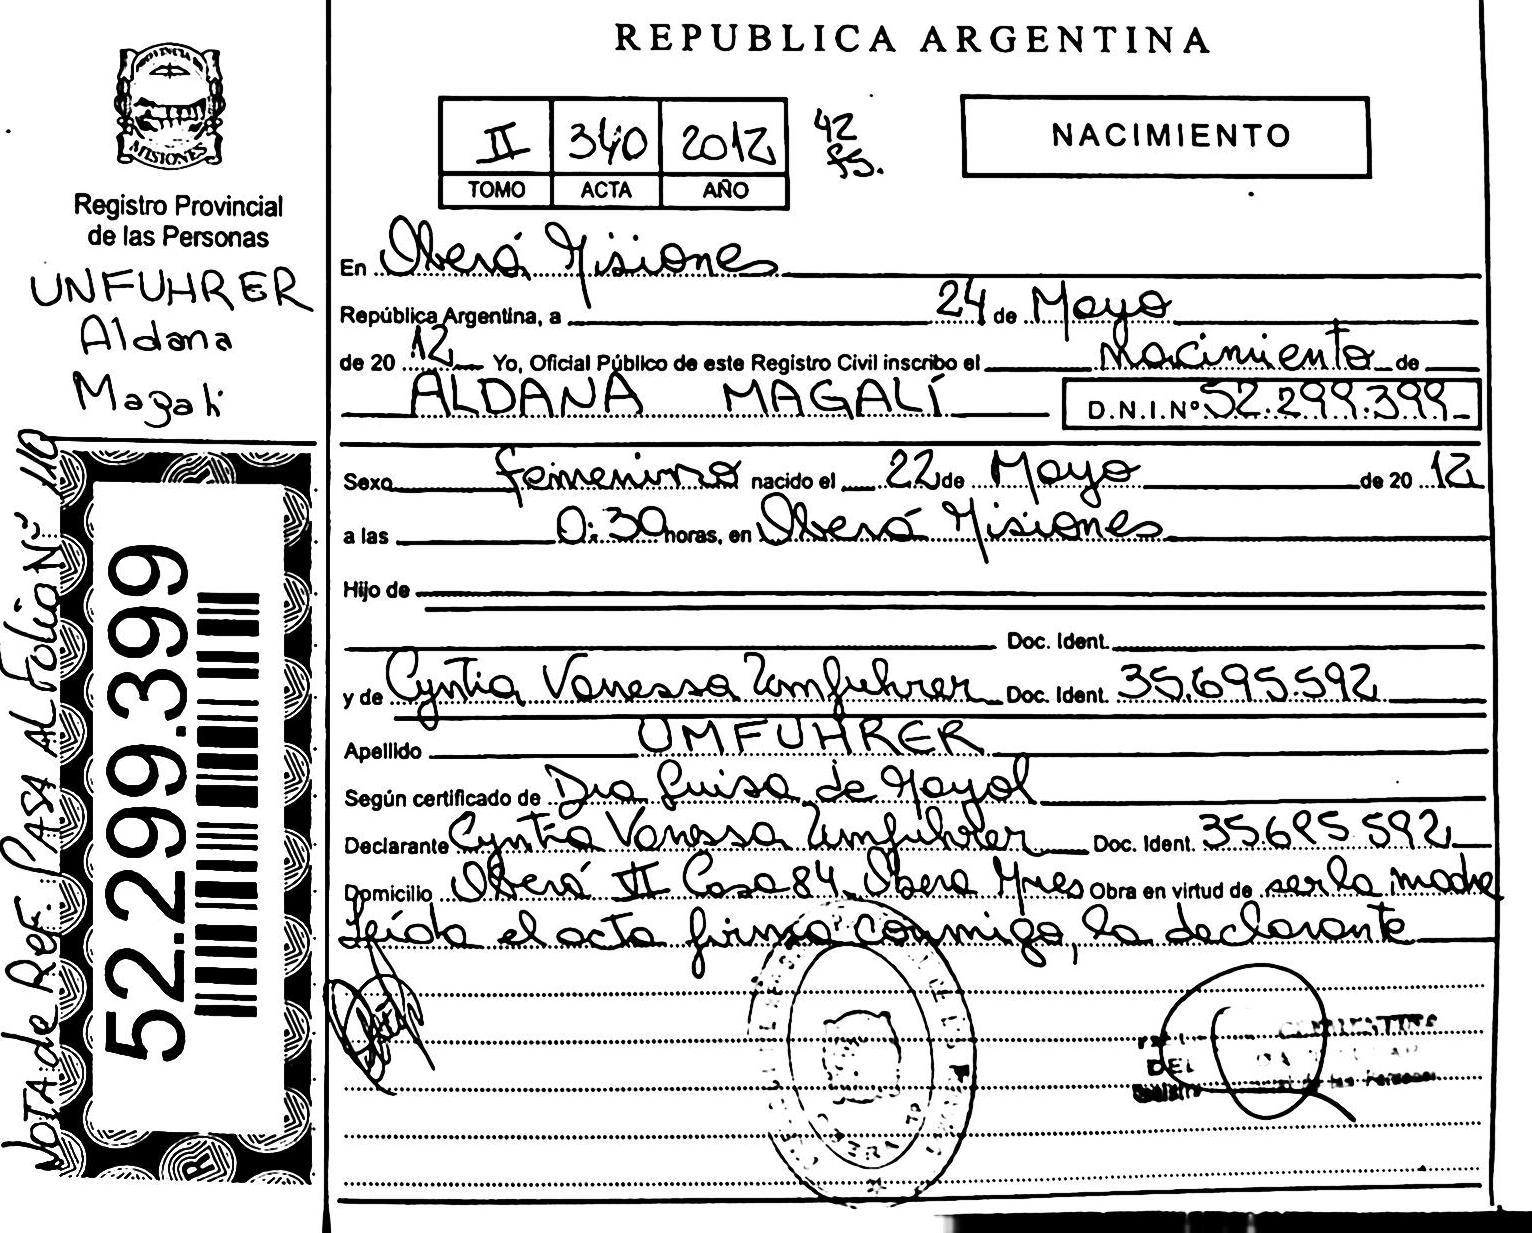 REPUBLICA ARGENTINA
PROVINCIA DE
MISIONES
Registro Provincial
de las Personas
UNFUHRER
Aldana
Magali
NOTA de Ref. PASA AL Folio Nº 110
52.299.399
II 340 2012
TOMO ACTA AÑO
42
fs.
NACIMIENTO
En Oberá Misiones
República Argentina, a 24 de Mayo
de 20 12 Yo, Oficial Público de este Registro Civil inscribo el Nacimiento de
ALDANA MAGALÍ D.N.I.Nº 52.299.399
Sexo femenino nacido el 22 de Mayo de 20 12
a las 0:30 horas, en Oberá Misiones
Hijo de
Doc. Ident.
y de Cyntia Vanessa Umfuhrer Doc. Ident. 35.695.592
Apellido UMFUHRER
Según certificado de Dra Luisa de Mayol
Declarante Cyntia Vanessa Umfuhrer Doc. Ident. 35695592
Domicilio Oberá VII Casa 84 Obera Mnes Obra en virtud de ser la madre
Leída el acta firma conmigo, la declarante
DEL
de las Personas